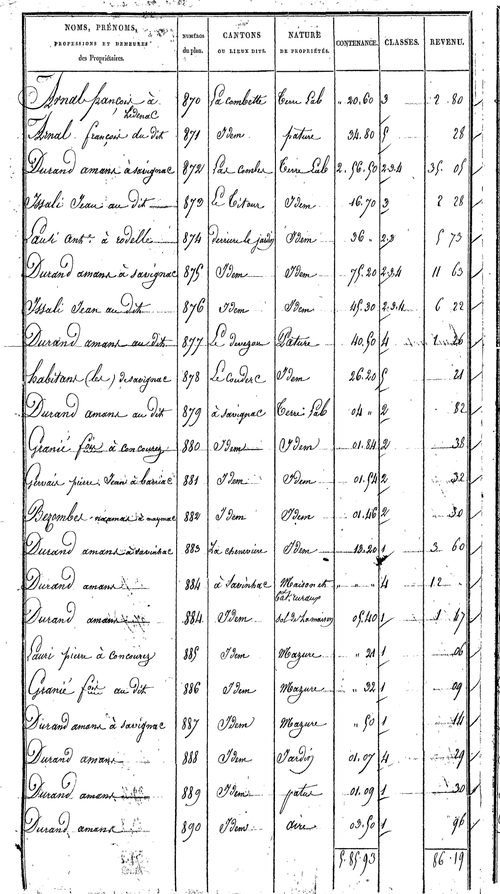 NOMS, PRÉNOMS, PROFESSIONS ET DEMEURES des Propriétaires. NUMÉRO du plan. CANTONS OU LIEUX DITS. NATURE DE PROPRIÉTÉS. CONTENANCE. CLASSES. REVENU.
Arnal françois à Ledenac 870 La combette Terre Lab " 20.60 3 2 80
Arnal françois du dit 871 Idem pature 34.80 5 28
Durand amans à savignac 872 Las combes Terre Lab 2.56.50 2.3.4 35. 05
Issali Jean au dit 873 Le Idem 16.70 3 2 28
Lauri ant. à rodelle 874 derriere le jardin Idem 36 " 2.3 5 73
Durand amans à savignac 875 Idem Idem 75.20 2.3.4 11 63
Issali Jean au dit 876 Idem Idem 45.30 2.3.4 6 22
Durand amans au dit 877 Le devezou Pature 40.50 4 1 26
habitans (les) de savignac 878 Le Couderc Idem 26.20 5 21
Durand amans au dit 879 à savignac Terre Lab 04 " 2 82
Granié fois à concourez 880 Idem Idem 01.84 2 38
Gervais pierre Jean à barriac 881 Idem Idem 01.54 2 32
Bezombes à maymac 882 Idem Idem 01.46 2 30
Durand amans à savinhac 883 La cheneviere Idem 13.20 1 3 60
Durand amans 884 à Savinhac Maison et bat. ruraux " " " 4 12 "
Durand amans 884 Idem sol de la maison 05.40 1 1 67
Lauri pierre à concourez 885 Idem Mazure " 21 1 06
Granié fois au dit 886 Idem Mazure " 32 1 09
Durand amans à savignac 887 Idem Mazure " 50 1 14
Durand amans 888 Idem Jardin 01.07 4 29
Durand amans 889 Idem patus 01.09 1 30
Durand amans 890 Idem aire 03.50 1 96
5.85.93 86.19